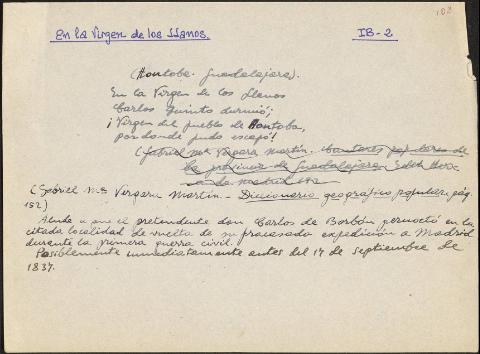 102
En la Virgen de los Llanos.
IB-2
(Hontoba. Guadalajara).
En la Virgen de los Llanos
Carlos Quinto durmió;
¡Virgen del pueblo de Hontoba,
por donde pudo escapó!
(Gabriel Mª Vergara Martín. Cantares populares de
la provincia de Guadalajara
Madrid
(Gabriel Mª Vergara Martín - Diccionario geográfico popular, pág.
152)
Alude a que el pretendente don Carlos de Borbón pernoctó en la
citada localidad de vuelta de su fracasada expedición a Madrid
durante la primera guerra civil.
Posiblemente inmediatamente antes del 17 de septiembre de
1837.